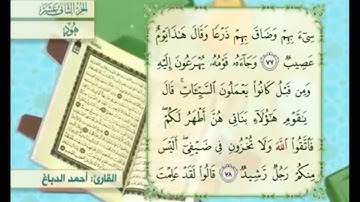 الجزء الثاني عشر
هُود
سِيٓءَ بِهِمْ وَضَاقَ بِهِمْ ذَرْعًا وَقَالَ هَٰذَا يَوْمٌ
عَصِيبٌ ٧٧ وَجَآءَهُۥ قَوْمُهُۥ يُهْرَعُونَ إِلَيْهِ
وَمِن قَبْلُ كَانُوا۟ يَعْمَلُونَ ٱلسَّيِّـَٔاتِ ۚ قَالَ
يَٰقَوْمِ هَٰٓؤُلَآءِ بَنَاتِى هُنَّ أَطْهَرُ لَكُمْ ۖ
فَٱتَّقُوا۟ ٱللَّهَ وَلَا تُخْزُونِ فِى ضَيْفِىٓ ۖ أَلَيْسَ
مِنكُمْ رَجُلٌ رَّشِيدٌ ٧٨ قَالُوا۟ لَقَدْ عَلِمْتَ
القارئ: أحمد الدباغ